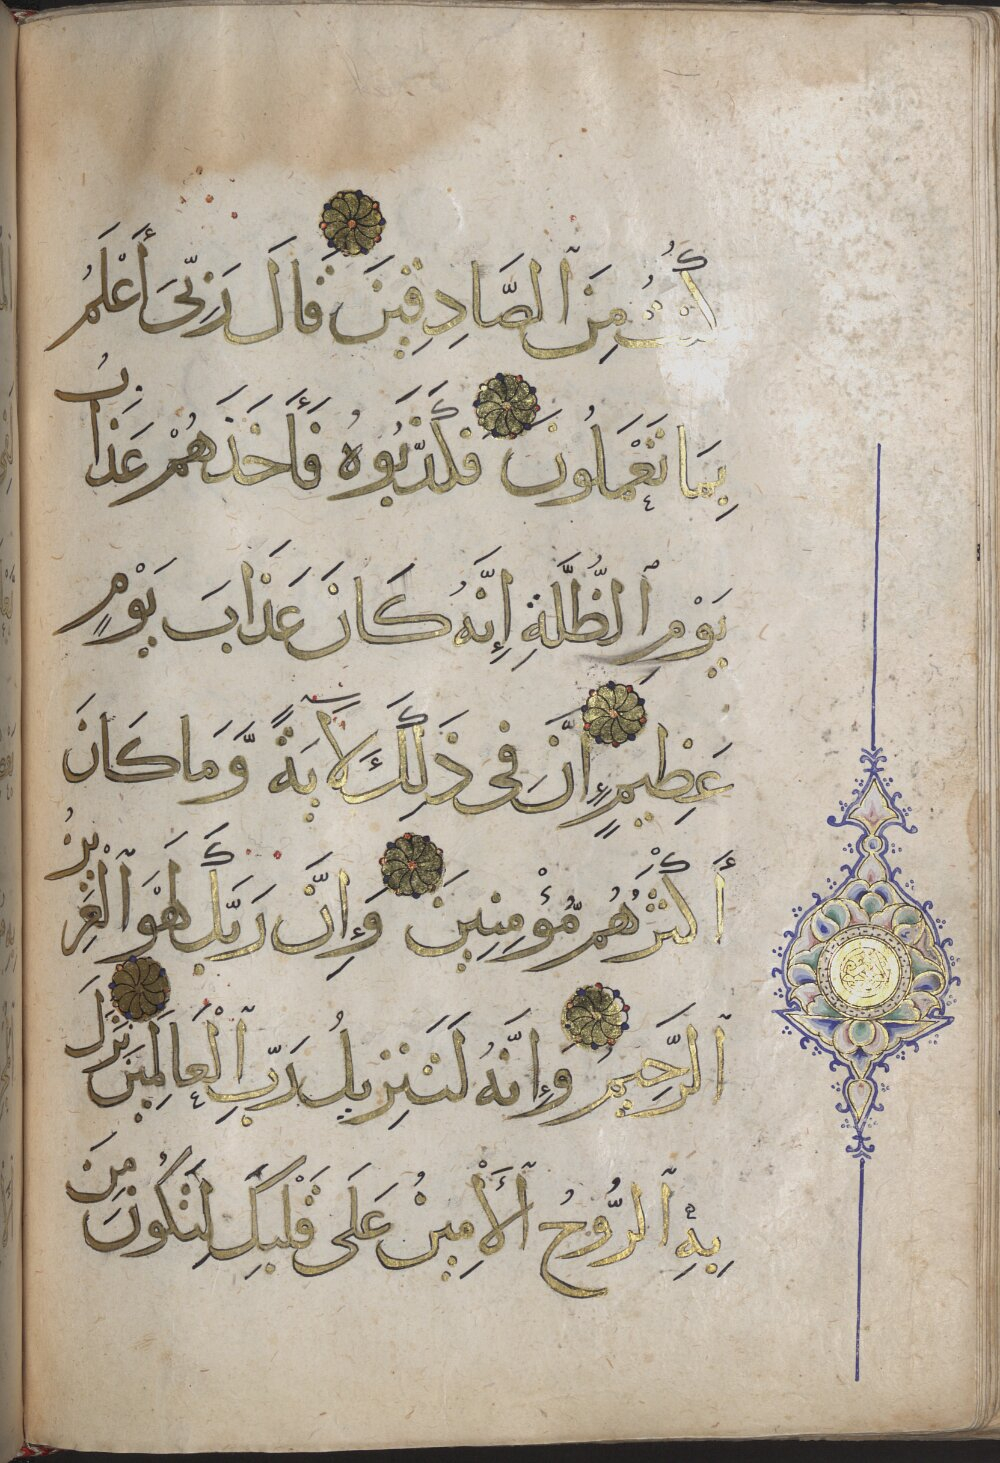 كُنْتَ مِنَ ٱلصَّادِقِينَ قَالَ رَبِّىٓ أَعْلَمُ
بِمَا تَعْمَلُونَ فَكَذَّبُوهُ فَأَخَذَهُمْ عَذَابُ
يَوْمِ ٱلظُّلَّةِ إِنَّهُ كَانَ عَذَابَ يَوْمٍ
عَظِيمٍ إِنَّ فِى ذَلِكَ لَآيَةً وَّمَا كَانَ
أَكْثَرُهُم مُّؤْمِنِينَ وَإِنَّ رَبَّكَ لَهُوَ ٱلْعَزِيزُ
ٱلرَّحِيمُ وَإِنَّهُ لَتَنزِيلُ رَبِّ ٱلْعَالَمِينَ نَزَلَ
بِهِ ٱلرُّوحُ ٱلْأَمِينُ عَلَى قَلْبِكَ لِتَكُونَ مِنَ